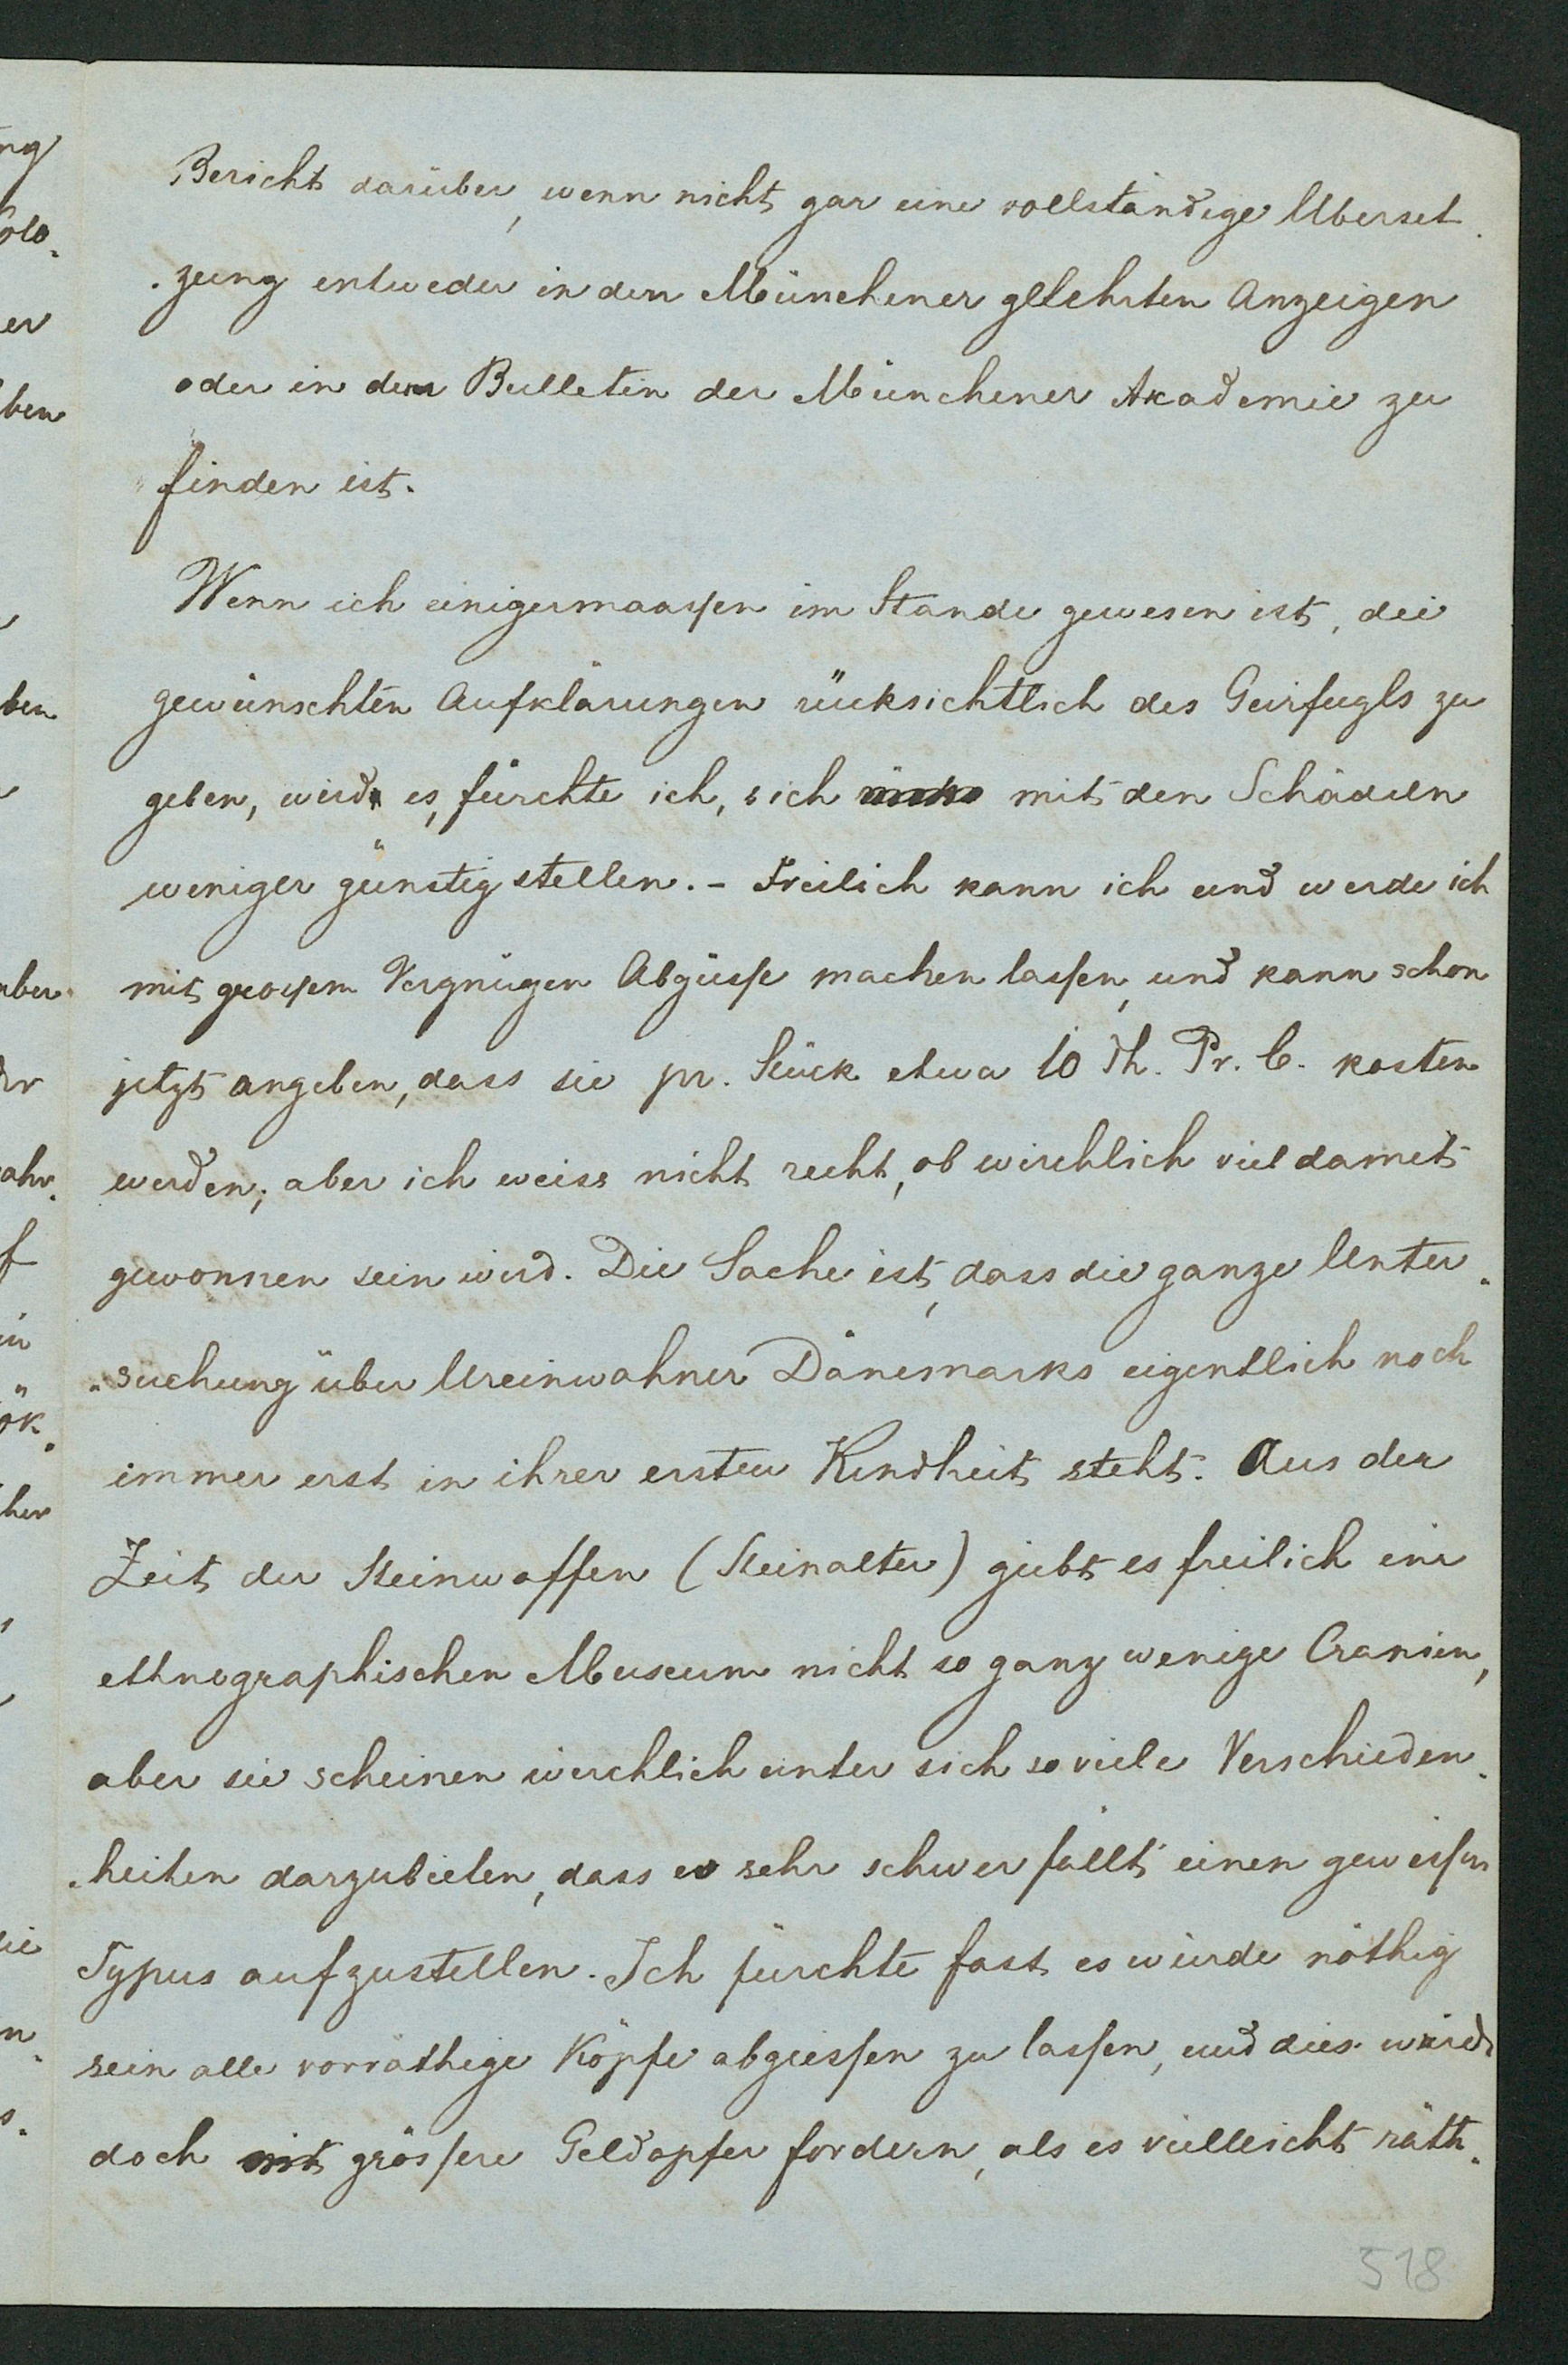 Bericht darüber, wenn nicht gar eine vollständige Uberset-
-zung entweder in den Münchener gelehrten Anzeigen
oder in dem Bulletin der Münchener Akademie zu
finden ist.
Wenn ich einigermaassen im Stande gewesen ist, die
gewünschten Aufklärungen rücksichtlich des Geirfugls zu
geben, wird es, fürchte ich, sich mit den Schädeln
weniger günstig stellen. - Freilich kann ich und werde ich
mit grossem Vergnügen Abgüsse machen lassen, und kann schon
jetzt angeben, dass sie pr. Stück etwa 10 Th. Pr. C. kosten
werden; aber ich weiss nicht recht, ob wirchlich viel damit
gewonnen sein wird. Die Sache ist, dass die ganze Unter-
-suchung über Ureinwohner Dänemarks eigentlich noch
immer erst in ihrer ersten Kindheit steht. Aus der
Zeit der Steinwaffen (Steinalter) giebt es freilich im
ethnographischen Museum nicht so ganz wenige Cranien,
aber sie scheinen wirchlich unter sich so viele Verschieden-
-heiten darzubieten, dass es sehr schwer fällt einen gewissen
Typus aufzustellen. Ich fürchte fast es würde nöthig
sein alle vorräthige Köpfe abgiessen zu lassen, und dies wird
doch grössere Geldopfer fordern, als es vielleicht räth-
518